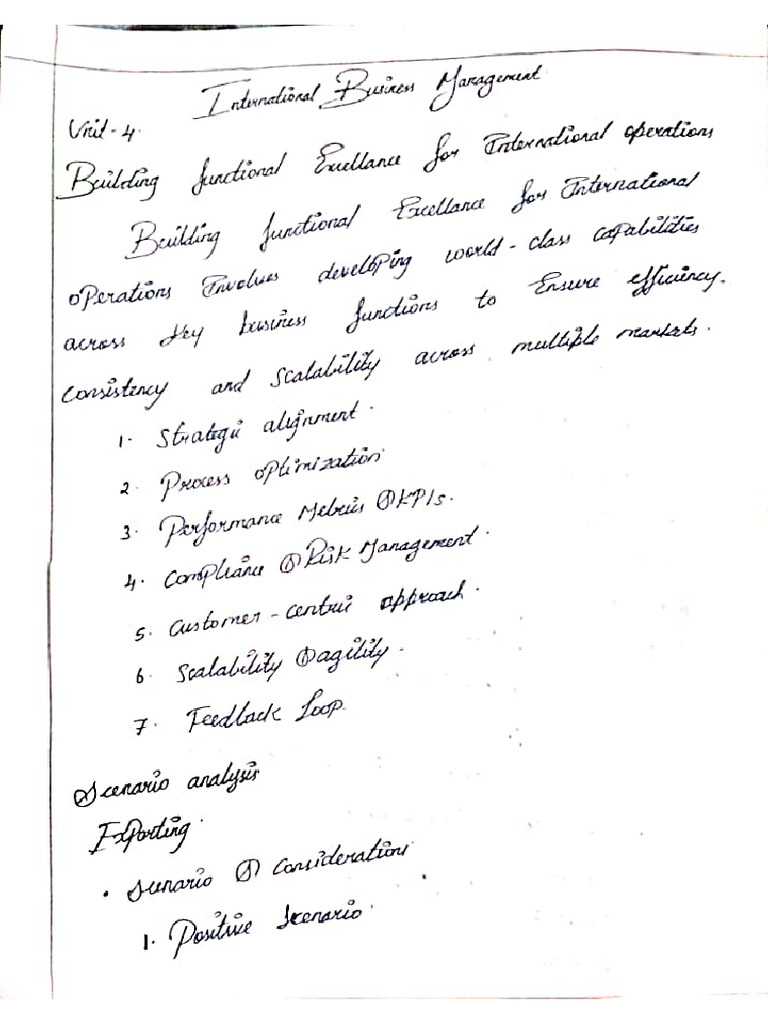 International Business Management
Unit-4.
Building functional Excellance for International operations
Building functional Excellance for International
operations Involves developing world-class capabilities
across key business functions to Ensure efficiency.
Consistency and scalability across multiple markets.
1. Strategic alignment.
2. Process optimization
3. Performance Metrics & KPIs.
4. Compliance & Risk Management.
5. Customer-centric approach.
6. Scalability & agility.
7. Feedback Loop.
Scenario analysis
Exporting.
• Scenario & Considerations
1. Positive Scenario.